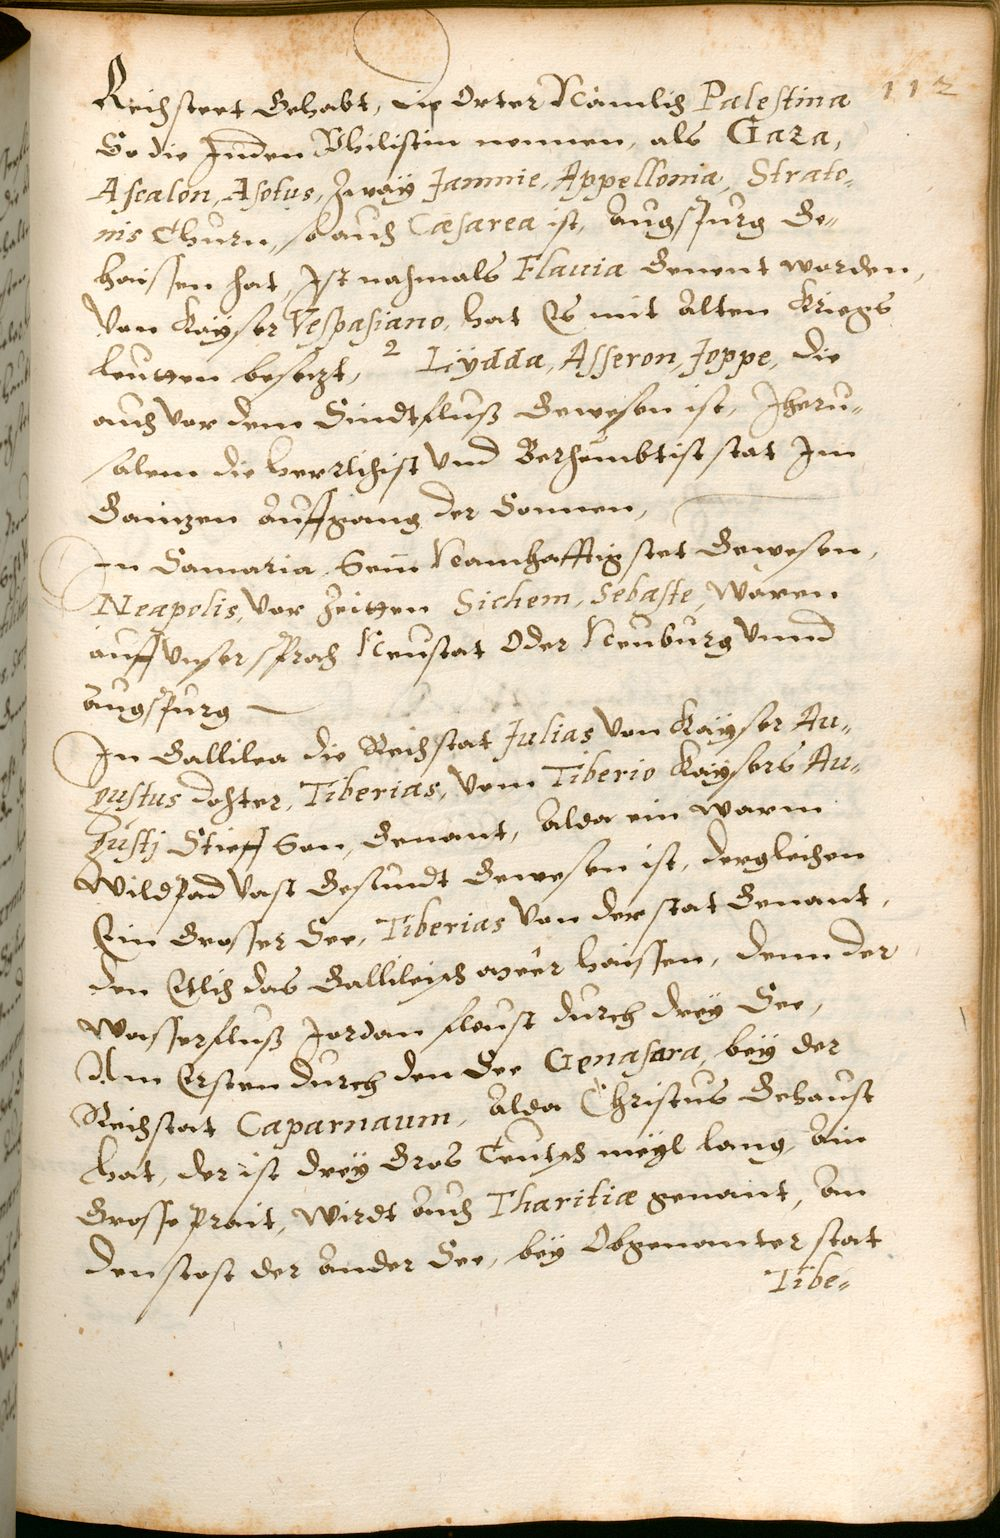 112
Reichstett Gehabt, die Orter Nämlich Palestina
So die Juden Philistin nennen, als Gaza,
Ascalon, Asotus, Zwaÿ Jamnie, Appellonia, Strato-
nis Thurn, so auch Cæsarea ist, Augspurg Ge-
haissen hat, Ist nahmals Flauia Genent worden,
Von Kaÿser Vespasiano, hat Es mit Alten Kriegs
leutten besetzt, 2 Lÿdda, Asseron, Joppe, die
auch Vor dem Sindtfluß Gewesen ist, Jheru-
salem die herrlichist Vnd Berhümbtist stat Im
Gainzen Auffgang der Sonnen,
In Samaria Sein Namhafftig stet Gewesen,
Neapolis, Vor Zeitten Sichem, Sebaste, Waren
auff Vnser Sprach Neustat Oder Neuburg Vnnd
Augspurg
In Gallilea die Reichstat Julias Von Kaÿser Au-
gustus dohter, Tiberias, Vom Tiberio Kaÿsers Au-
gustj Stieff Son, Genant, Alda ein Warm
Wildpad Vast Gesundt Gewesen ist, dergleichen
Ein Grosser See, Tiberias Von der stat Genant,
den Etlich das Gallileisch Meer haissen, denn der
Wasserfluß Jordan fleust durch dreÿ See,
Am Ersten durch den See Genasara, beÿ der
Reichstat Caparnaum, Alda Christus Gehaust
hat, der ist dreÿ Gros Teutsch meÿl lang, Ain
Grosse Prait, Wirdt Auch Tharitiæ genant, An
den stost der Ander See, beÿ Obgenanter stat
Tibe-